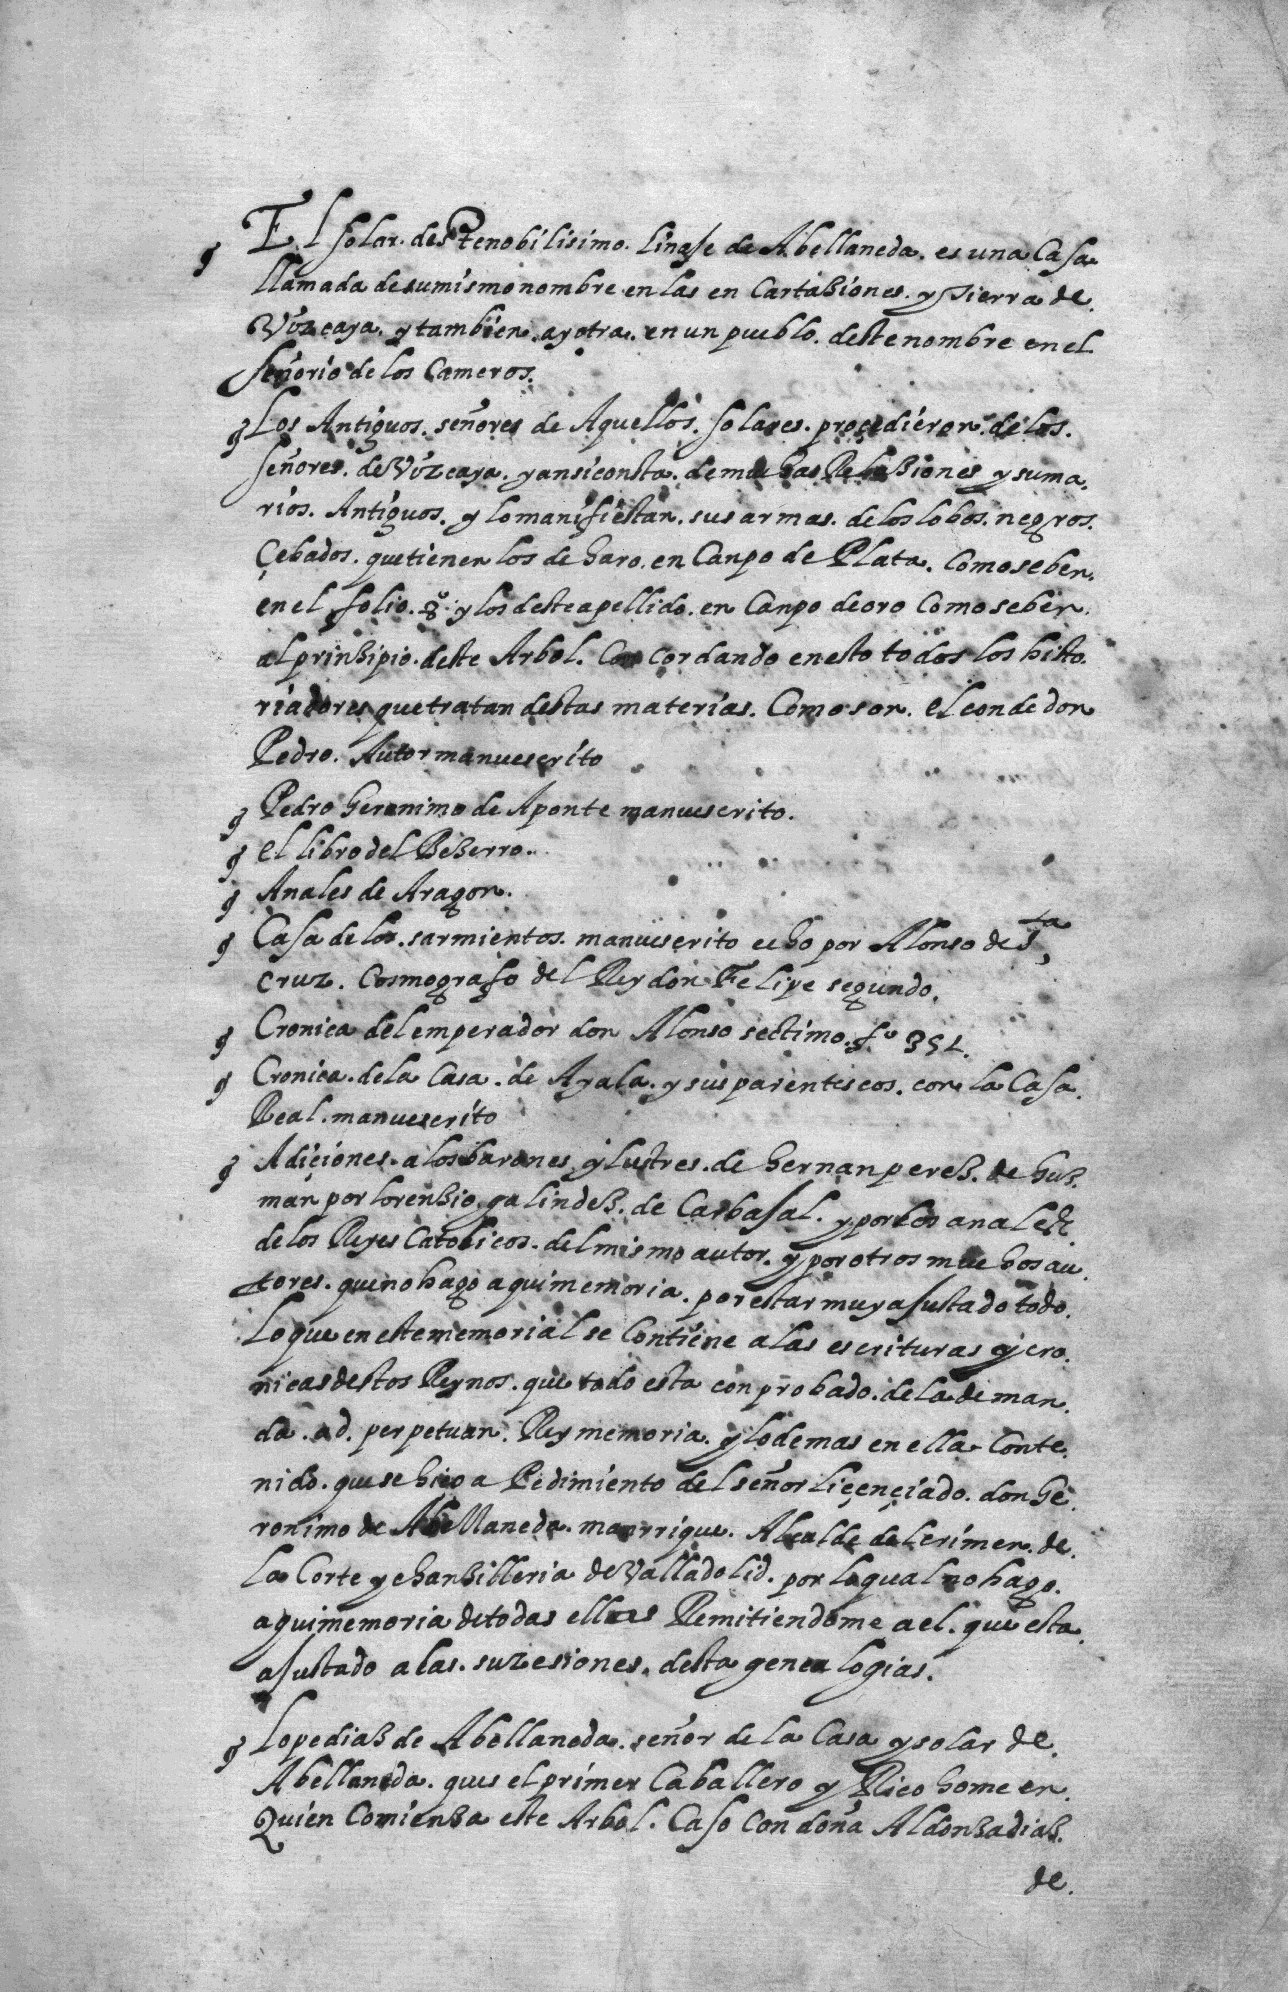 El solar. deste nobilisimo. linaje de Abellaneda. es una Casa
llamada de su mismo nombre en las en Cartasiones. y sierra de.
Vizcaya. y tambien. ay otra. en un pueblo. deste nombre en el
señorio de los Cameros.
Los Antiguos. señores de Aquellos. solares. procedieron. de los.
señores. de Vizcaya. y ansi consta. de muchas Relasiones y suma.
rios. Antiguos. y lo manifiestan. sus armas. de los lobos. negros.
çebados. que tienen los de haro. en Canpo de Plata. Como se ben.
en el folio. 8º. y los deste apellido. en Canpo de oro Como se ben.
al prinsipio. deste Arbol. Con cordando en esto todos los histo.
riadores que tratan destas materias. Como son. el conde don
Pedro. Autor manuescrito
Pedro Geronimo de Aponte manuescrito.
el libro del Beserro.
Anales de Aragon.
Casa de los. sarmientos. manuescrito echo por Alonso de Sta
cruz. Cosmografo del Rey don Felipe segundo.
Cronica del emperador don Alonso sectimo. fº 351.
Cronica. de la Casa. de Ayala. y sus parentescos. con la Casa.
Real. manuescrito
Adiçiones. a los barones ylustres. de hernan peres. de Gus.
man por lorensio galindes. de Carbajal. y por los anales
de los Reyes Catolicos. del mismo autor. y por otros muchos au.
tores. que no hago aqui memoria. por estar muy ajustado todo.
Lo que en este memorial se Contiene a las escrituras y cro.
nicas destos Reynos. que todo esta conprobado. de la deman.
da. ad. perpetuan. Rey memoria. y lo demas en ella Conte.
nido. que se hiço a Pedimiento del señor liçençiado. don Ge.
ronimo de Abellaneda. manrrique. Alcalde del crimen. de.
la Corte y chansilleria de Valladolid. por lo qual no hago.
aqui memoria de todas ellas Remitiendome a el. que esta.
ajustado a las. suzesiones. desta genealogias.
Lope dias de Abellaneda. señor de la Casa y solar de.
Abellaneda. ques el primer Caballero y Rico home en.
Quien Comiensa este Arbol. Caso Con doña Aldonsa dias.
de.